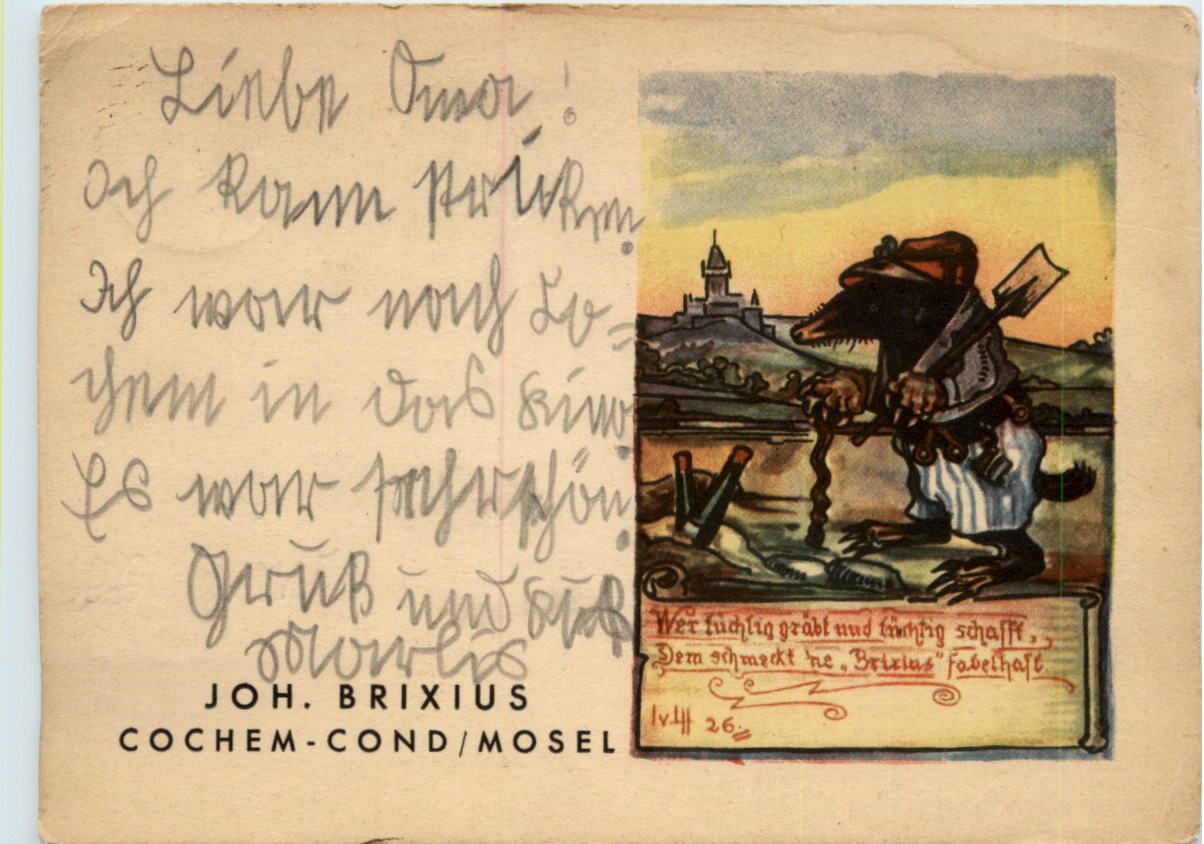 Liebe Oma!
Ich kann stricken.
Ich war nach Co=
chem in das Kino.
Es war sehr schön.
Gruß und Kuß
Marlis
JOH. BRIXIUS
COCHEM-COND/MOSEL
Wer tüchtig gräbt und tüchtig schafft,
Dem schmeckt 'ne „Brixius" fabelhaft.
26.